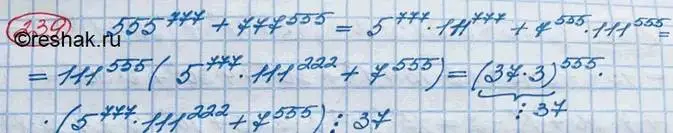 239 555^777 + 777^555 = 5^777 · 111^777 + 7^555 · 111^555 =
©reshak.ru
= 111^555 ( 5^777 · 111^222 + 7^555 ) = (37·3)^555 ·
· (5^777 · 111^222 + 7^555) ⋮ 37 ⋮ 37